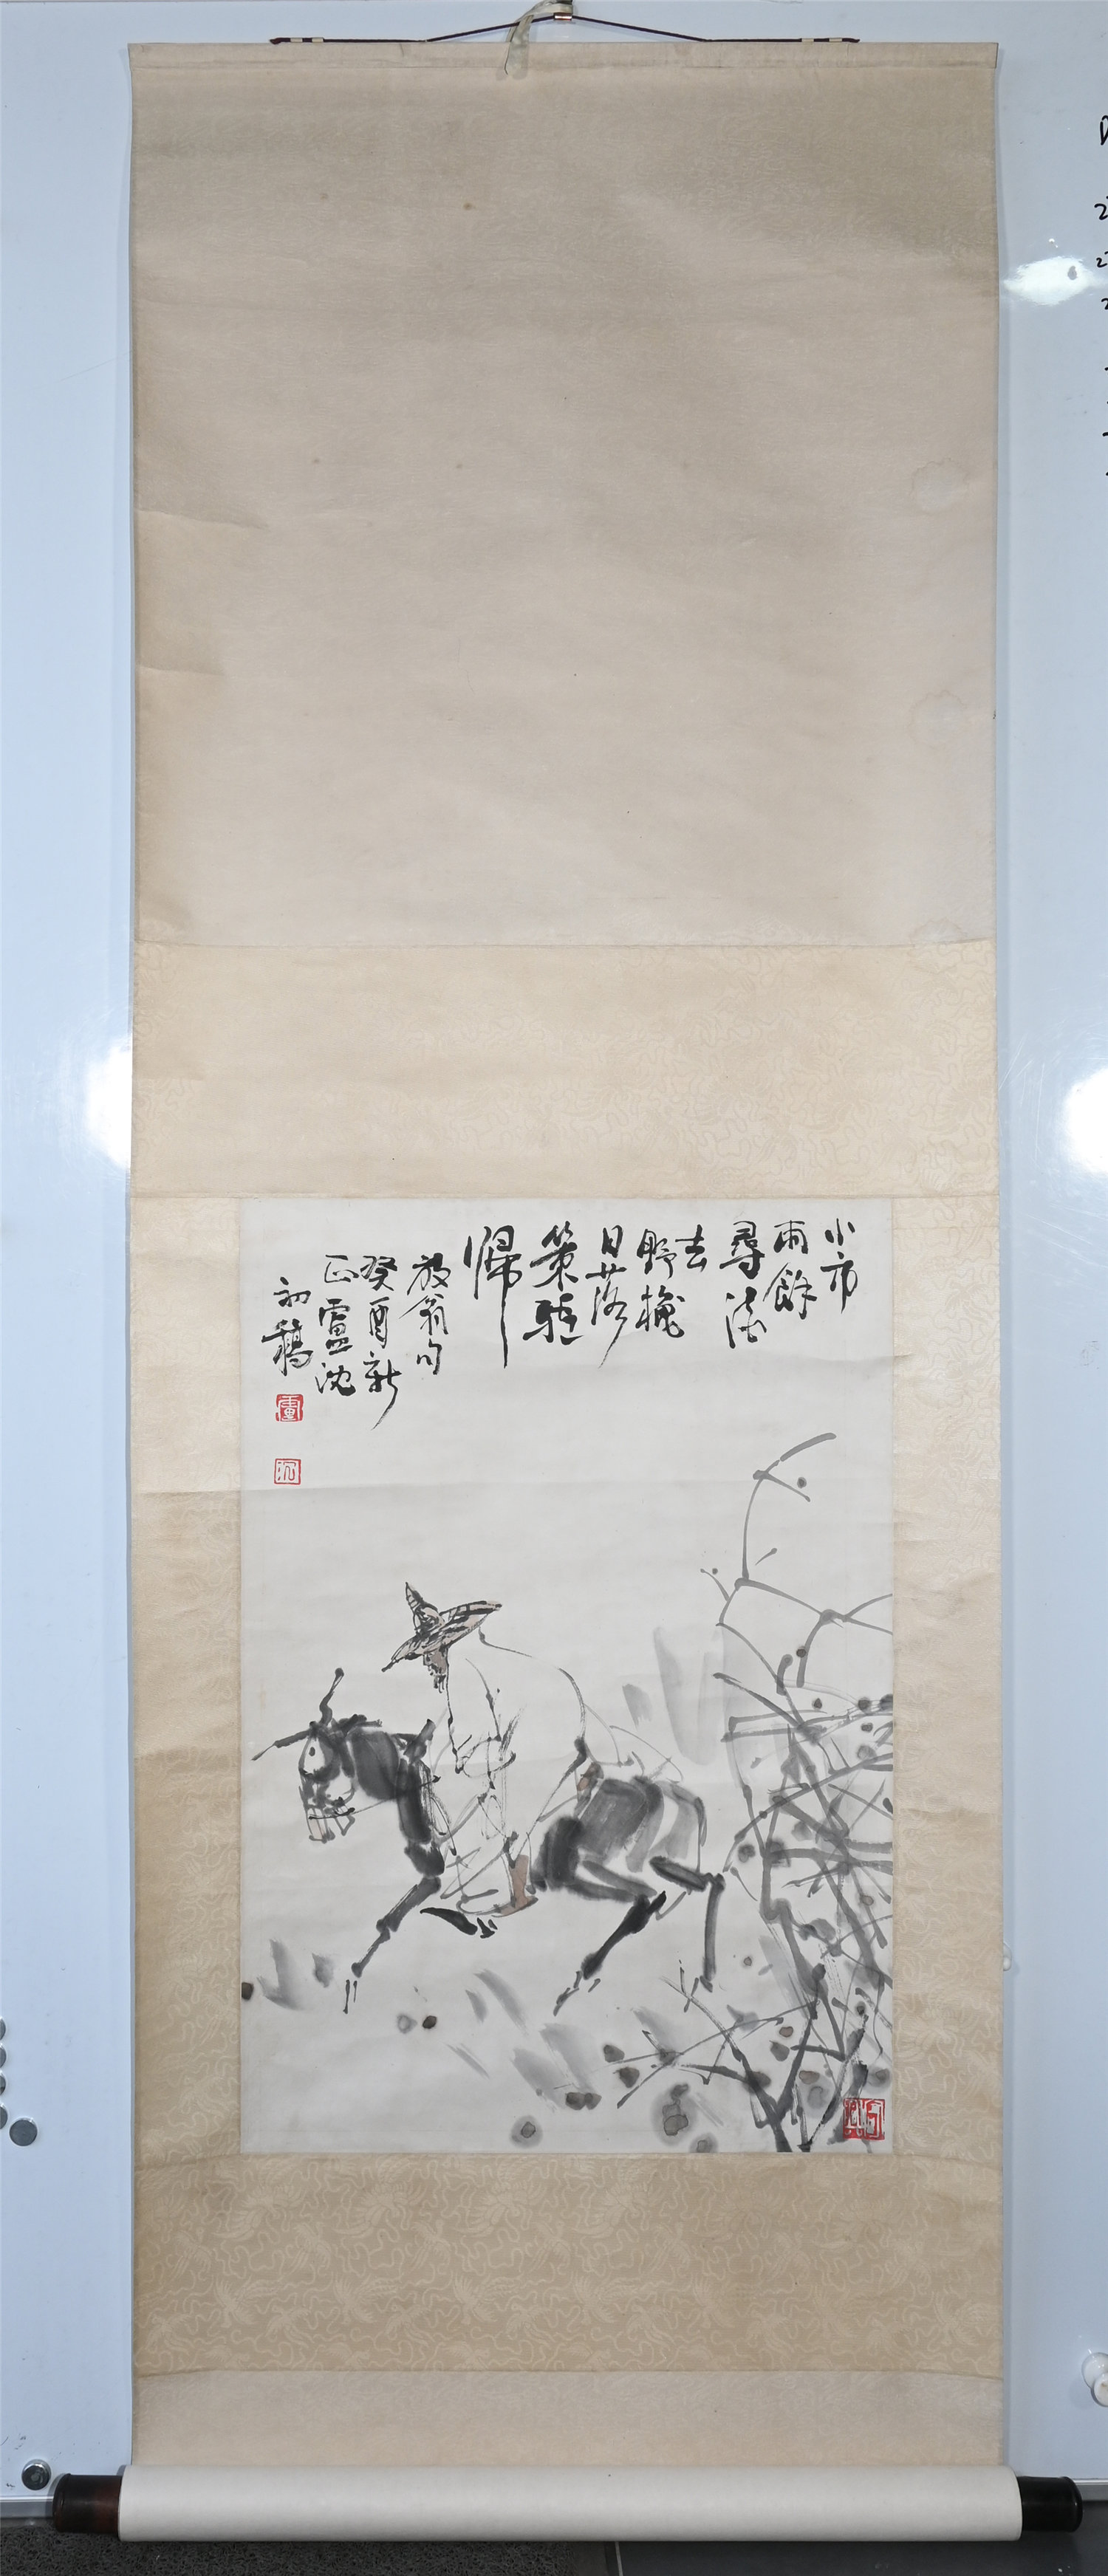 小市
雨餘
尋
去
野橋
日落
策驢
歸
放翁句
癸酉新
正盧沈
初稿
盧
沈